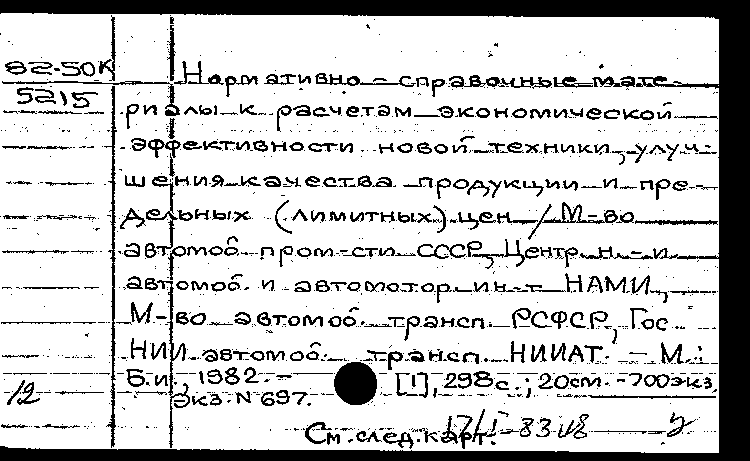 82-50К
5215
Нормативно-справочные мате-
риалы к расчетам экономической
эффективности новой техники, улуч-
шения качества продукции и пре-
дельных (лимитных) цен / М-во
автомоб. пром-сти СССР, Центр. н.-и.
автомоб. и автомотор. ин-т НАМИ,
М-во автомоб. трансп. РСФСР, Гос.
НИИ автомоб. трансп. НИИАТ. - М.:
Б.и., 1982. - [1], 298с.; 20см. - 700экз.
Экз. N 697.
12
См. след. карт.
17/I-83